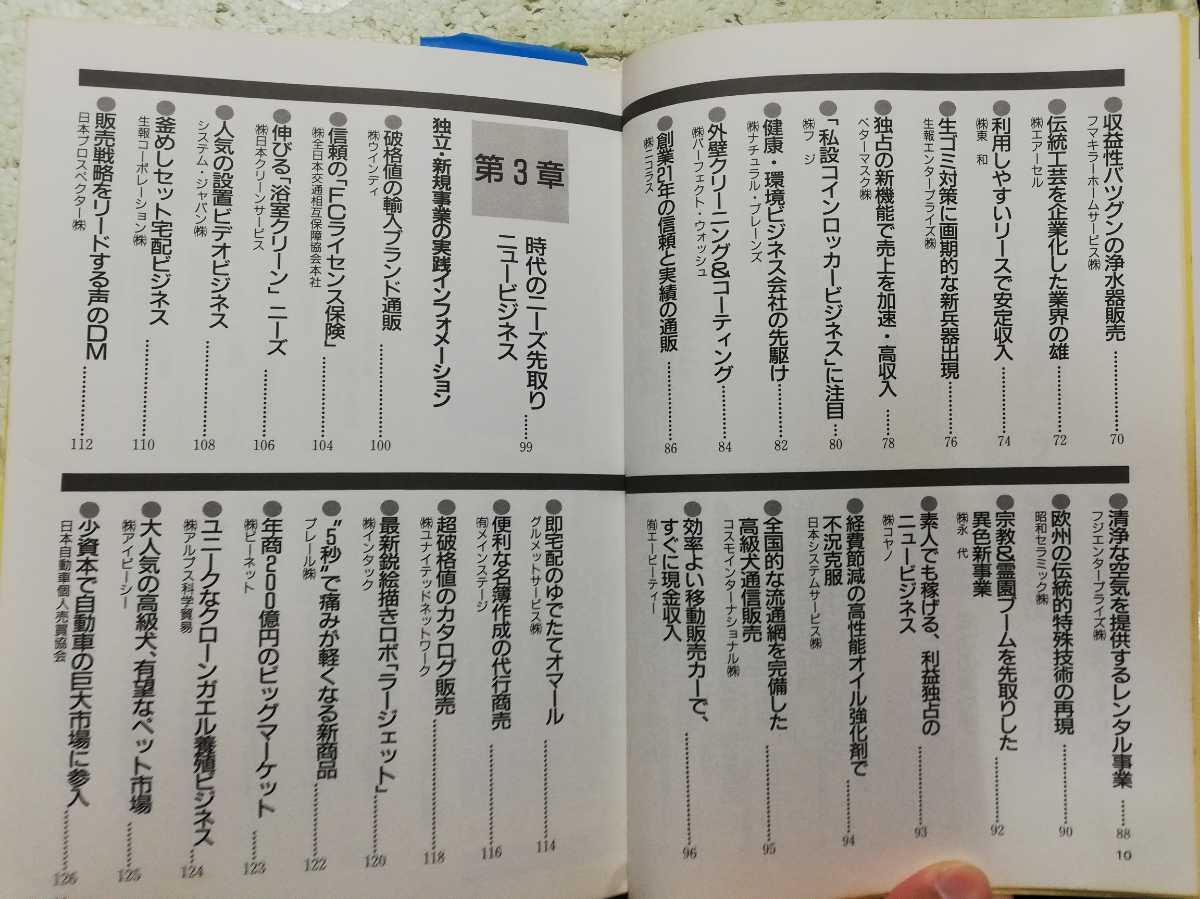 収益性バツグンの浄水器販売……70
フマキラーホームサービス㈱
伝統工芸を企業化した業界の雄……72
㈱エアーセル
利用しやすいリースで安定収入……74
㈱東和
生ゴミ対策に画期的な新兵器出現……76
生報エンタープライズ㈱
独占の新機能で売上を加速・高収入……78
ベターマスク㈱
「私設コインロッカービジネス」に注目……80
㈱フジ
健康・環境ビジネス会社の先駆け……82
㈱ナチュラル・ブレーンズ
外壁クリーニング&コーティング……84
㈱パーフェクト・ウォッシュ
創業21年の信頼と実績の通販……86
㈱ニコラス
清浄な空気を提供するレンタル事業……88
フジエンタープライズ㈱
欧州の伝統的特殊技術の再現……90
昭和セラミック㈱
宗教&霊園ブームを先取りした
異色新事業……92
㈱永代
素人でも稼げる、利益独占の
ニュービジネス……93
㈱コヤノ
経費節減の高性能オイル強化剤で
不況克服……94
日本システムサービス㈱
全国的な流通網を完備した
高級犬通信販売……95
コスモインターナショナル㈱
効率よい移動販売カーで、
すぐに現金収入……96
㈲エービーティー
10
第3章
時代のニーズ先取り
ニュービジネス……99
独立・新規事業の実践インフォメーション
破格値の輸入ブランド通販……100
㈱ウインディ
信頼の「FCライセンス保険」……104
㈱全日本交通相互保障協会本社
伸びる「浴室クリーン」ニーズ……106
㈱日本クリーンサービス
人気の設置ビデオビジネス……108
システム・ジャパン㈱
釜めしセット宅配ビジネス……110
生報コーポレーション㈱
販売戦略をリードする声のDM……112
日本プロスペクター㈱
即宅配のゆでたてオマール……114
グルメットサービス㈱
便利な名簿作成の代行商売……116
㈲メインステージ
超破格値のカタログ販売……118
㈱ユナイテッドネットワーク
最新鋭絵描きロボ「ラージェット」……120
㈱インタック
"5秒"で痛みが軽くなる新商品……122
プレール㈱
年商200億円のビッグマーケット……123
㈱ビーネット
ユニークなクローンガエル養殖ビジネス……124
㈱アルプス科学貿易
大人気の高級犬、有望なペット市場……125
㈱アイビーシー
少資本で自動車の巨大市場に参入……126
日本自動車個人売買協会